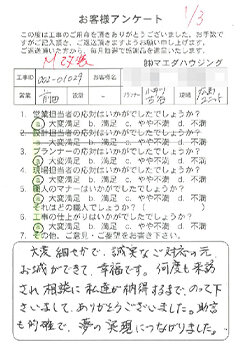 お客様アンケート
1/3
この度は工事のご用命を頂きありがとうございました。お手数で
すがご記入頂き、ご返送頂けますようお願い申し上げます。
ご返送頂いた方から、毎月抽選で粗品を進呈いたします。
㈱マエダハウジング
工事ID 002-01029 お客様名
営業 前田 プランナー 現場
1. 営業担当者の対応はいかがでしたでしょうか?
a 大変満足 b. 満足 c. やや不満 d. 不満
2. 設計担当者の対応はいかがでしたでしょうか?
a 大変満足 b. 満足 c. やや不満 d. 不満
3. プランナーの対応はいかがでしたでしょうか?
a 大変満足 b. 満足 c. やや不満 d. 不満
4. 現場担当者の対応はいかがでしたでしょうか?
a 大変満足 b. 満足 c. やや不満 d. 不満
5. 職人のマナーはいかがでしたでしょうか?
a 大変満足 b. 満足 c. やや不満 d. 不満
それはどの職人でしょうか?
6. 工事の仕上がりはいかがでしたでしょうか?
a 大変満足 b. 満足 c. やや不満 d. 不満
7. その他、ご意見・ご要望をお書き下さい。
大変細やかで、誠実なご対応の元
お城ができて、幸福です。何度も来訪
され相談に私達が納得するまで、のって下
さいまして、ありがとうございました。助言
も的確で、夢の実現につながりました。